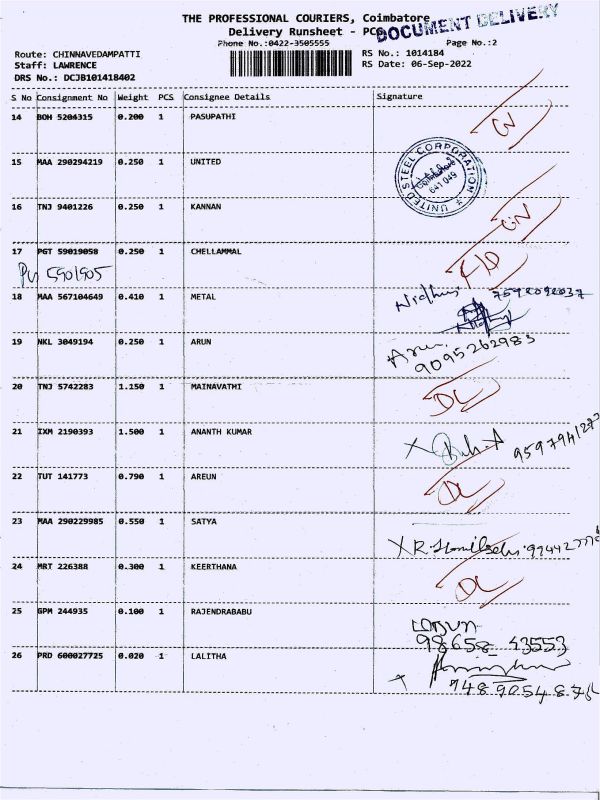 THE PROFESSIONAL COURIERS, Coimbatore
DOCUMENT DELIVERY
Delivery Runsheet - PCG
Phone No.:0422-3505555
Page No.:2
Route: CHINNAVEDAMPATTI
RS No.: 1014184
Staff: LAWRENCE
RS Date: 06-Sep-2022
DRS No.: DCJB101418402
S No Consignment No Weight PCS Consignee Details Signature
14 BOH 5204315 0.200 1 PASUPATHI
15 MAA 290294219 0.250 1 UNITED
UNITED STEEL CORPORATION
641 049
16 TNJ 9401226 0.250 1 KANNAN
17 PGT 59019058 0.250 1 CHELLAMMAL
5901905
18 MAA 567104649 0.410 1 METAL
19 NKL 3049194 0.250 1 ARUN
Arun
9095262983
20 TNJ 5742283 1.150 1 MAINAVATHI
DL
21 IXM 2190393 1.500 1 ANANTH KUMAR
22 TUT 141773 0.790 1 AREUN
DL
23 MAA 290229985 0.550 1 SATYA
24 MRT 226388 0.300 1 KEERTHANA
DL
25 GPM 244935 0.100 1 RAJENDRABABU
98658 43553
26 PRD 600027725 0.020 1 LALITHA